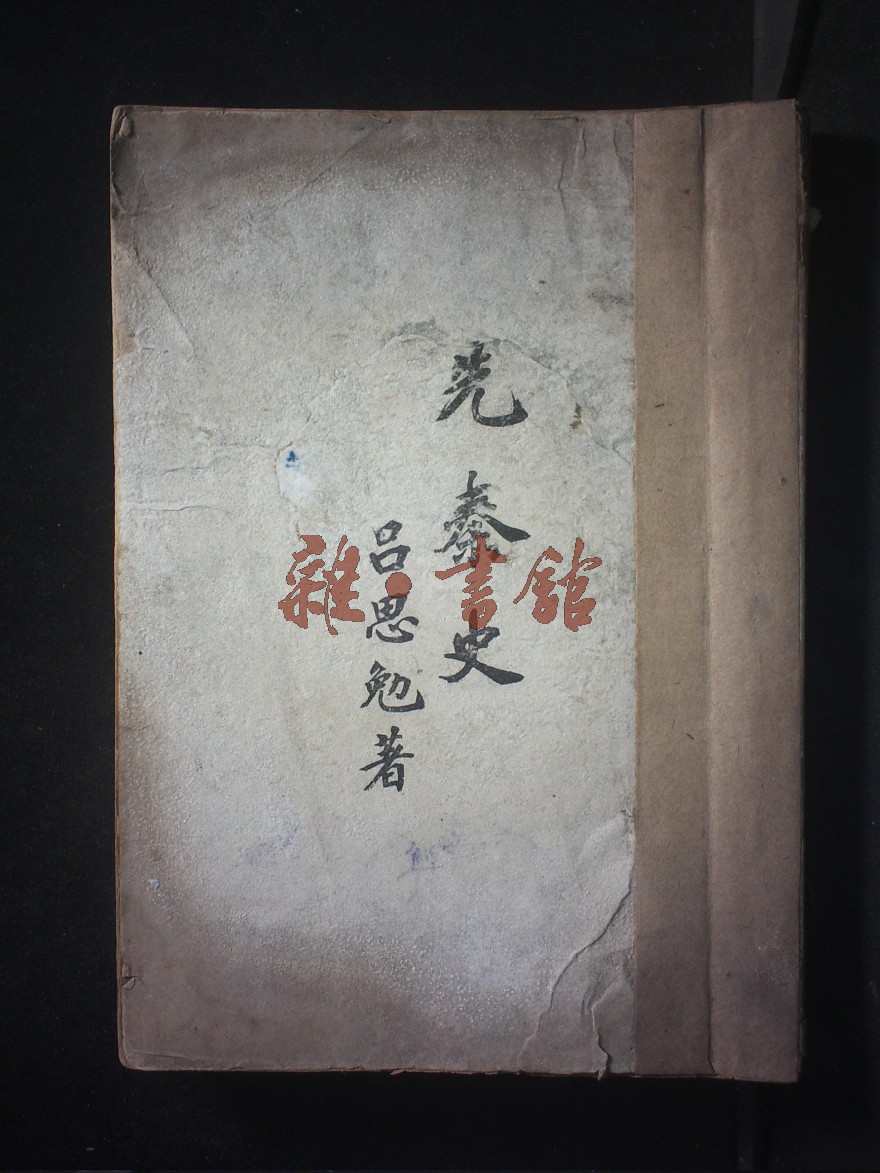 先秦史
吕思勉著
雜·書館